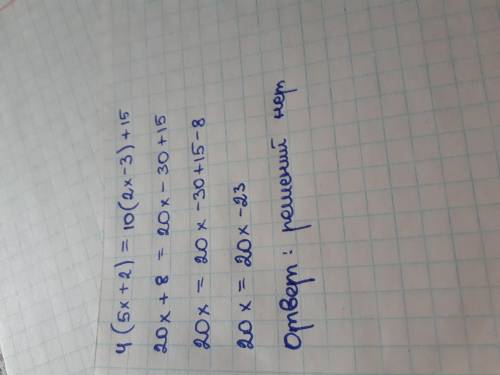 4(5x+2) = 10(2x-3)+15
20x+8 = 20x-30+15
20x = 20x-30+15-8
20x = 20x-23
Ответ: решений нет